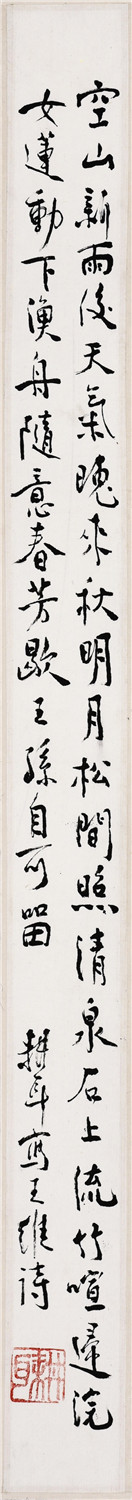 空山新雨後天氣晚來秋明月松間照清泉石上流竹喧歸浣
女蓮動下漁舟隨意春芳歇王孫自可留
耕年寫王維詩